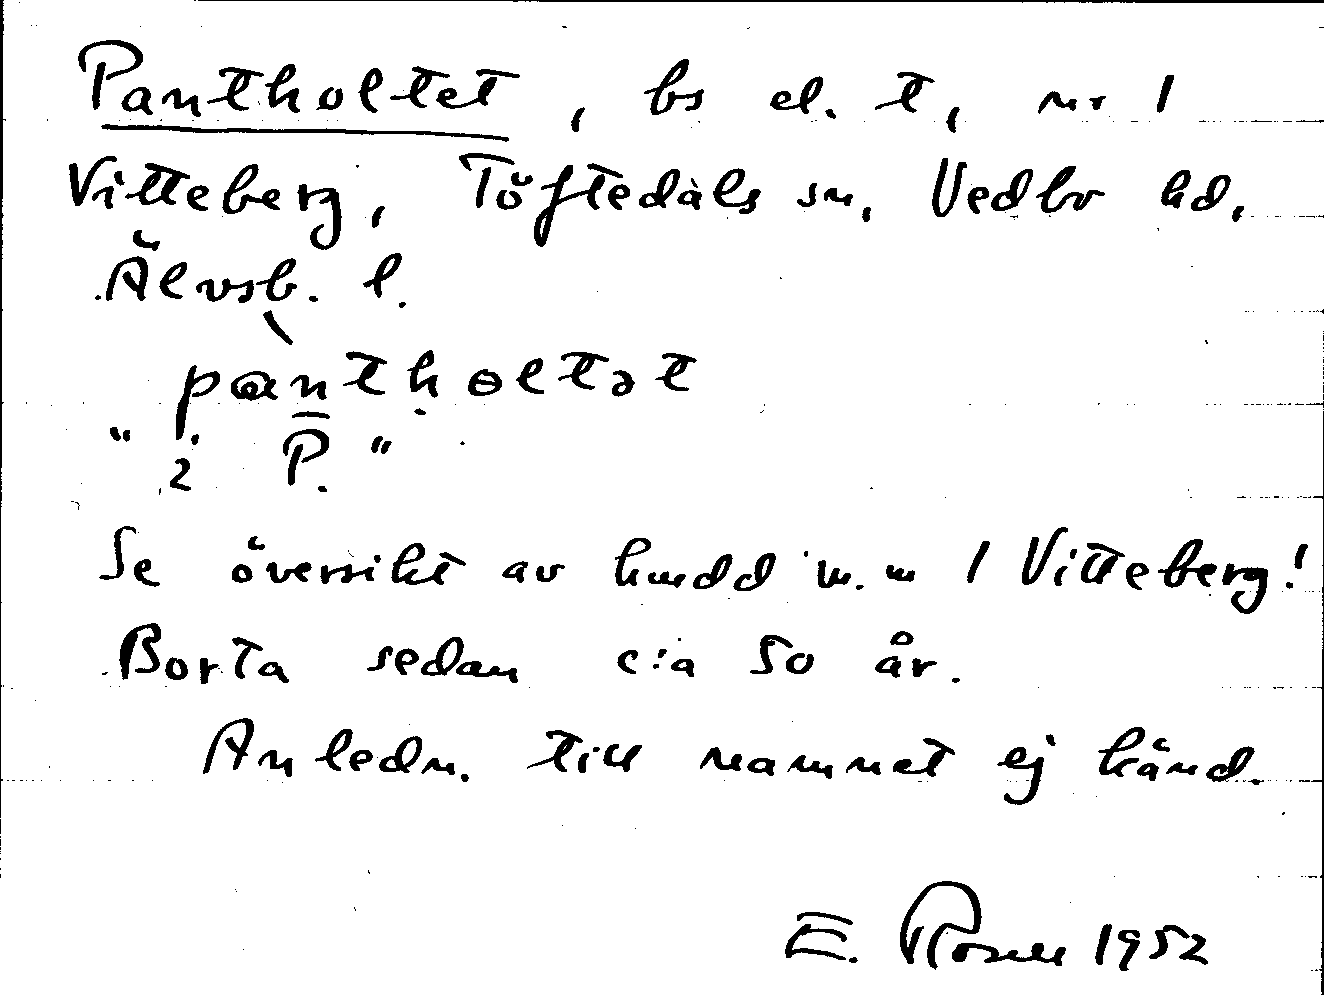 Pantholtet, bs el. t, nr 1
Vitteberg, Töftedals sn, Vedbo hd,
Älvsb. l.
pàntholtət
"i P."
Se översikt av hmdd m.m 1 Vitteberg!
Borta sedan c:a 50 år.
Anledn. till namnet ej känd.
E. Rosell 1952